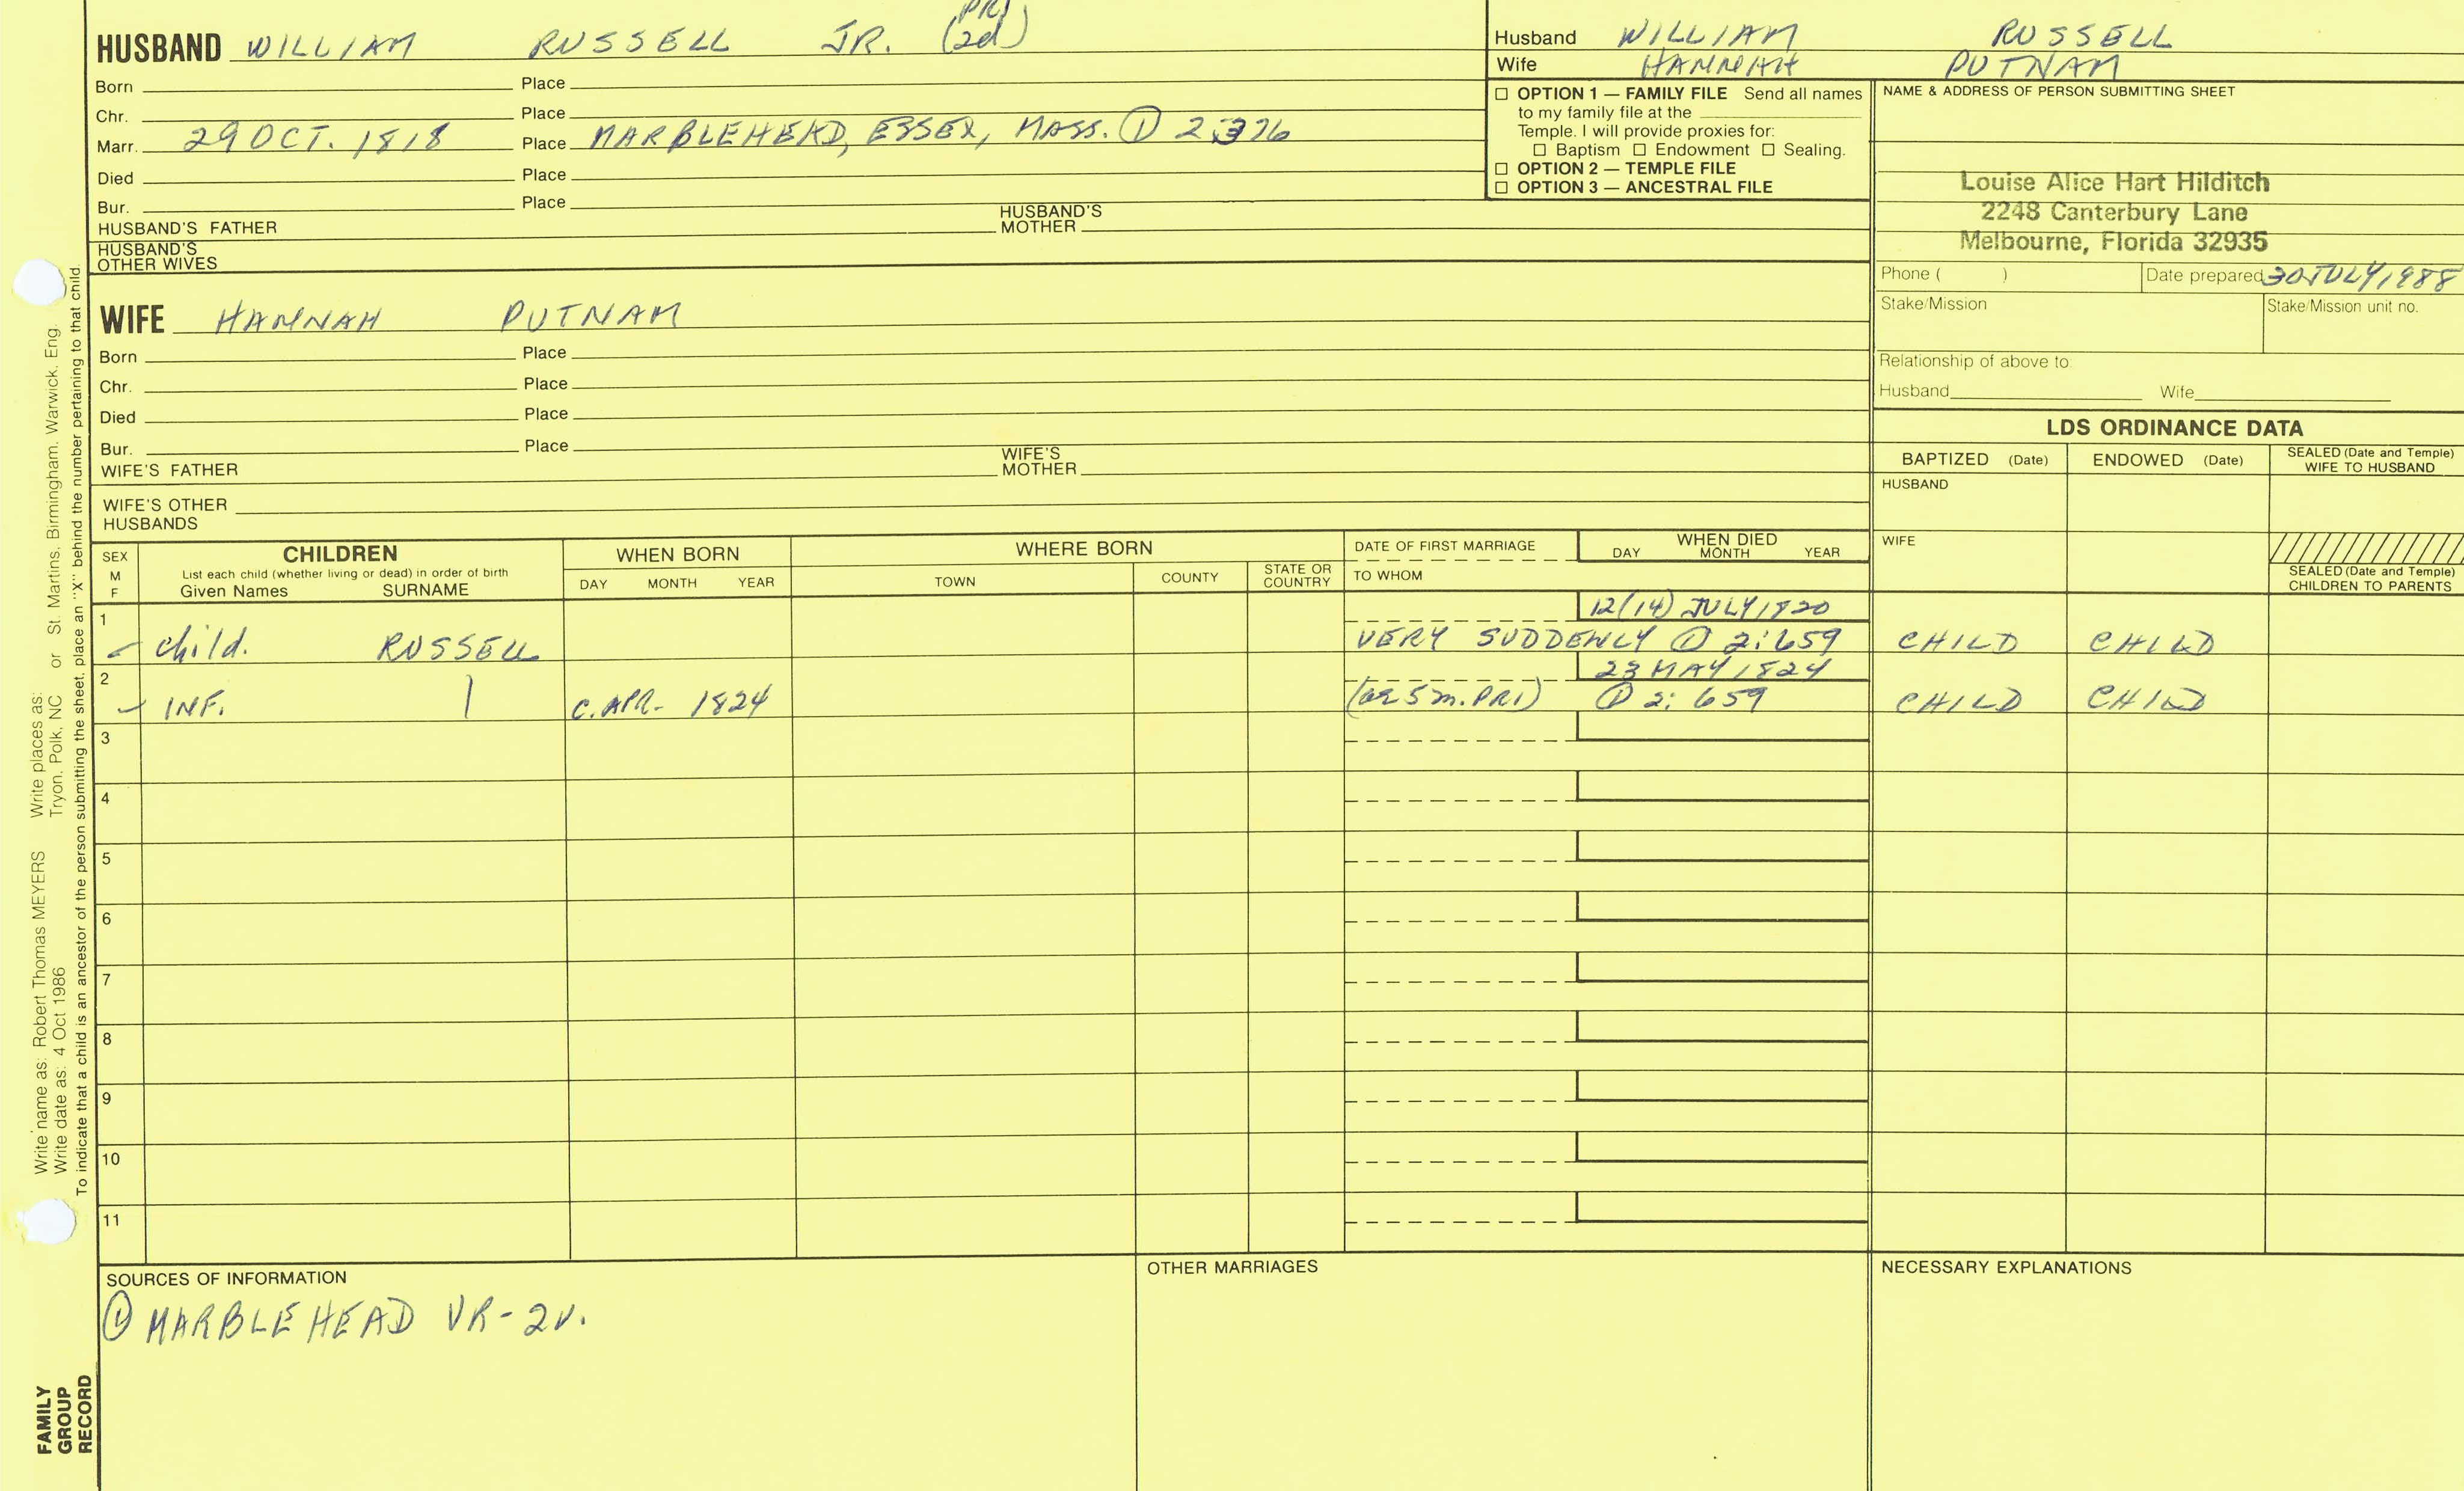 HUSBAND WILLIAM RUSSELL JR. (2d) PR1
Born Place
Chr. Place
Marr. 29 OCT. 1818 Place MARBLEHEAD, ESSEX, MASS. ① 2:376
Died Place
Bur. Place
HUSBAND'S FATHER HUSBAND'S MOTHER
HUSBAND'S OTHER WIVES
Husband WILLIAM RUSSELL
Wife HANNAH PUTNAM
☐ OPTION 1 — FAMILY FILE Send all names
to my family file at the
Temple. I will provide proxies for:
☐ Baptism ☐ Endowment ☐ Sealing.
☐ OPTION 2 — TEMPLE FILE
☐ OPTION 3 — ANCESTRAL FILE
NAME & ADDRESS OF PERSON SUBMITTING SHEET
Louise Alice Hart Hilditch
2248 Canterbury Lane
Melbourne, Florida 32935
Phone ( ) Date prepared 30 JULY 1988
Stake/Mission Stake/Mission unit no.
Relationship of above to:
Husband Wife
WIFE HANNAH PUTNAM
Born Place
Chr. Place
Died Place
Bur. Place
WIFE'S FATHER WIFE'S MOTHER
WIFE'S OTHER
HUSBANDS
LDS ORDINANCE DATA
BAPTIZED (Date) ENDOWED (Date) SEALED (Date and Temple)
WIFE TO HUSBAND
HUSBAND
WIFE
SEALED (Date and Temple)
CHILDREN TO PARENTS
SEX
M
F
CHILDREN
List each child (whether living or dead) in order of birth
Given Names SURNAME
WHEN BORN
DAY MONTH YEAR
WHERE BORN
TOWN COUNTY STATE OR COUNTRY
DATE OF FIRST MARRIAGE
TO WHOM
WHEN DIED
DAY MONTH YEAR
1 12(14) JULY 1820
child. RUSSELL VERY SUDDENLY ① 2:659 CHILD CHILD
2 23 MAY 1824
INF. C. APR- 1824 (ae 5 m. PR1) ① 2:659 CHILD CHILD
3
4
5
6
7
8
9
10
11
SOURCES OF INFORMATION
① MARBLEHEAD VR-2V.
OTHER MARRIAGES
NECESSARY EXPLANATIONS
Write name as: Robert Thomas MEYERS Write places as:
Write date as: 4 Oct 1986 Tryon, Polk, NC or St. Martins, Birmingham, Warwick, Eng.
To indicate that a child is an ancestor of the person submitting the sheet, place an "X" behind the number pertaining to that child.
FAMILY
GROUP
RECORD